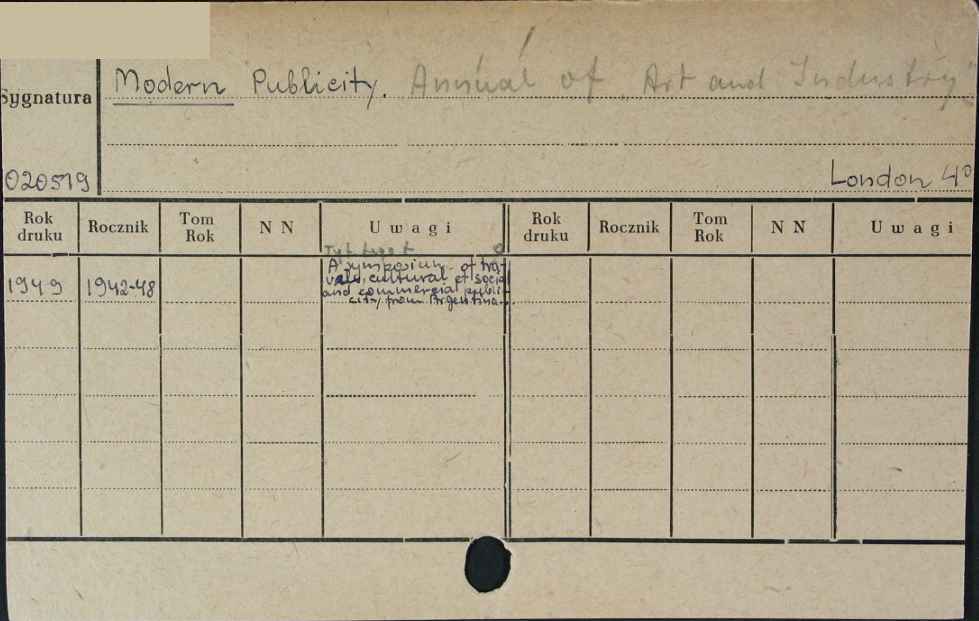 Modern Publicity. Annual of "Art and Industry"
Sygnatura
020519
London 4°
Rok druku Rocznik Tom Rok N N Uwagi Rok druku Rocznik Tom Rok N N Uwagi
A symposium of tra-
vels, cultural et social
and commercial publi-
city from Argentina
1949 1942-48